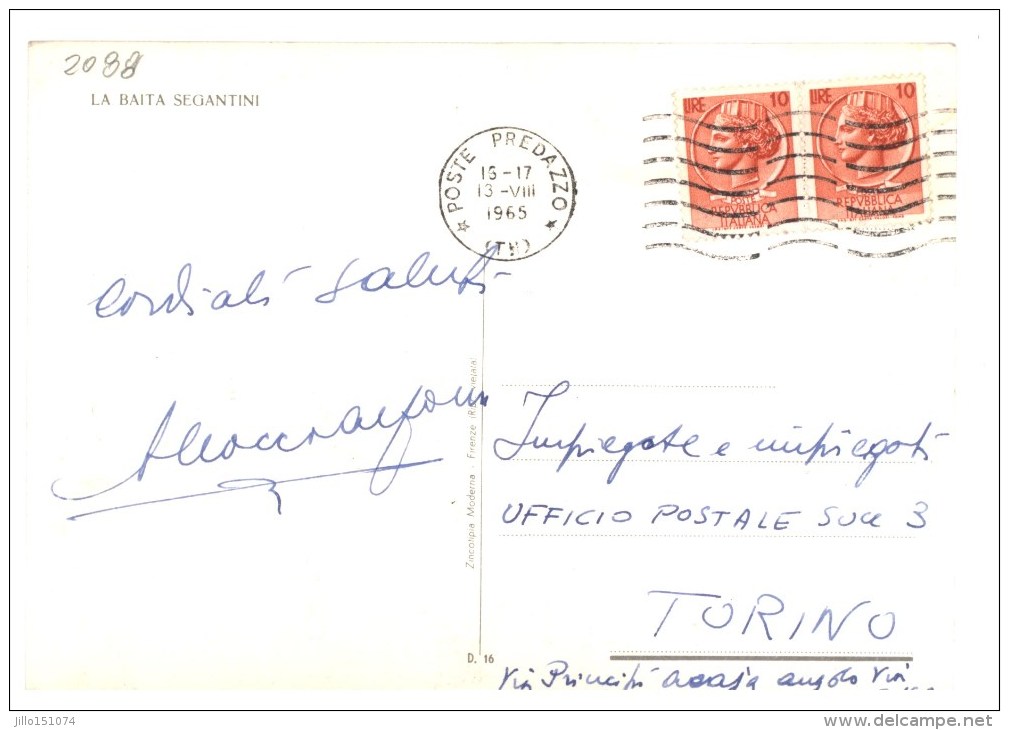 2088
LA BAITA SEGANTINI
POSTE PREDAZZO
16-17
13-VIII
1965
(TN)
LIRE 10
POSTE
REPVBBLICA
ITALIANA
LIRE 10
REPVBBLICA
ITALIANA
Cordiali saluti
Zincotipia Moderna - Firenze
Impiegate e impiegati
UFFICIO POSTALE SUCC 3
TORINO
D. 16
Via Principi acaja angolo Via
jillo151074
www.delcampe.net